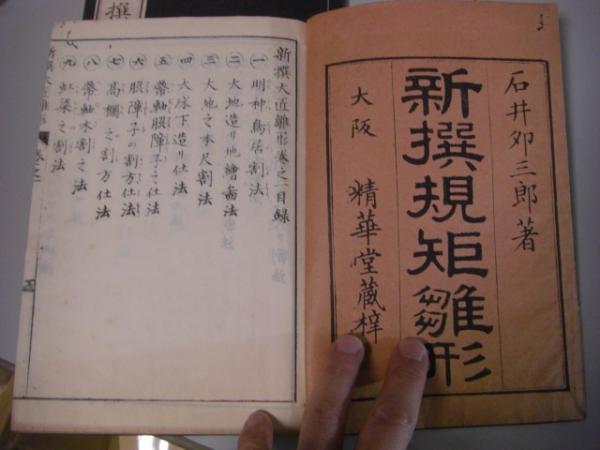 石井卯三郎著
新撰規矩雛形
大阪 精華堂蔵梓
新撰大匠雛形巻之一目録
一 明神鳥居割法
二 大地造り地繪啚法
三 大地之本尺割法
四 大床下造り仕法
五 帶軸腰障子之仕法
六 腰障子の割方仕法
七 高欄之割方仕法
八 帶軸木割之法
九 虹梁之割法
撰